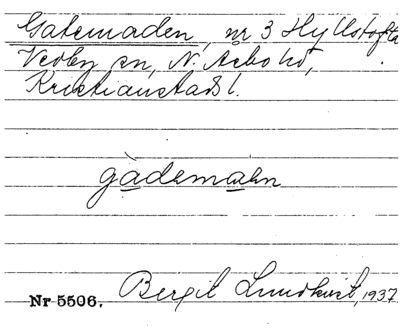 Gatemaden, nr 3 Hyllstofta
Vedby sn, N. Åsbo hd,
Kristianstads l.
gàdemàhn
Nr 5506. Bergit Lundkvist, 1937